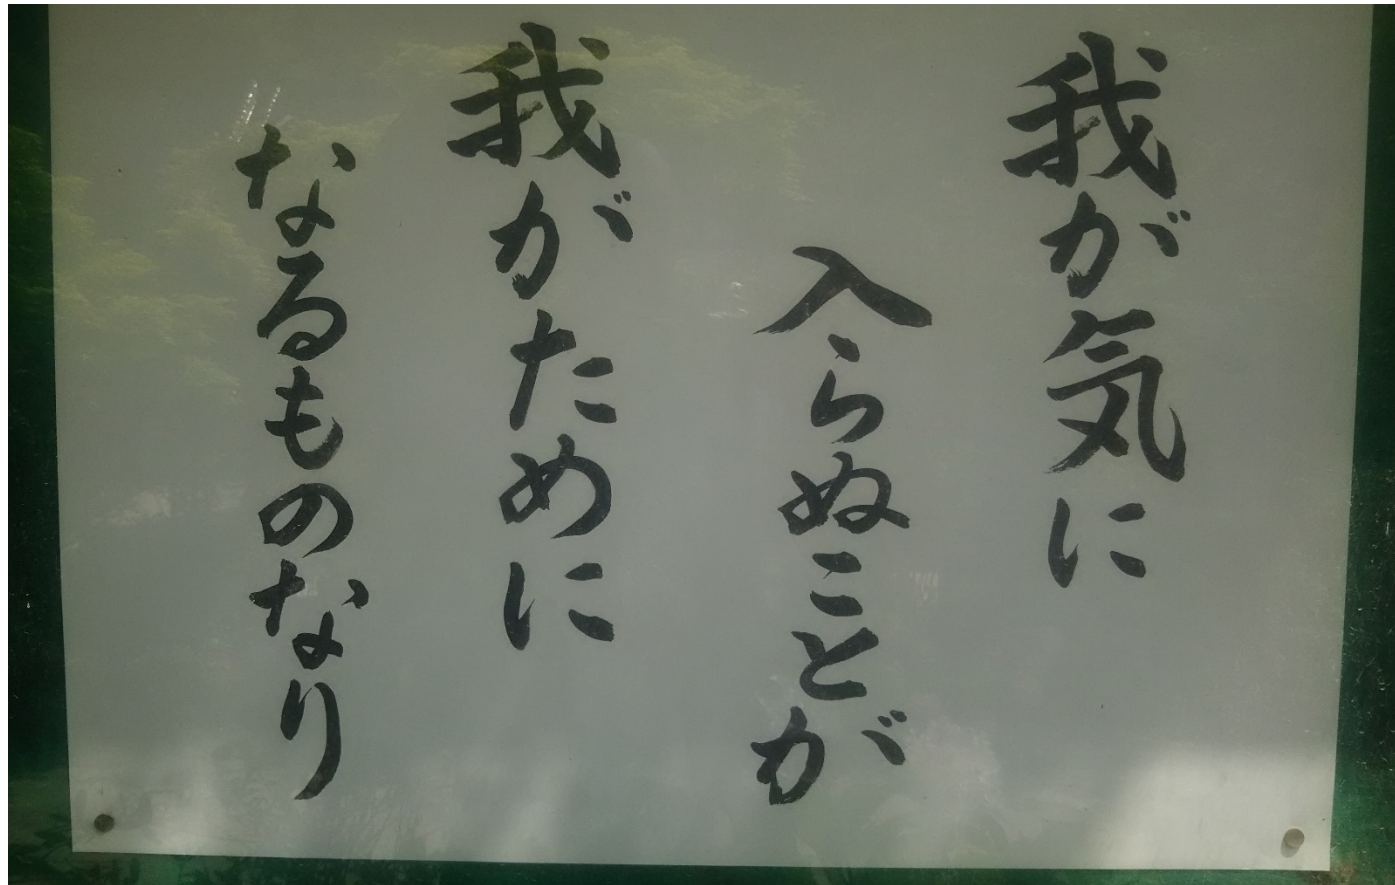 我が気に
入らぬことが
我がために
なるものなり